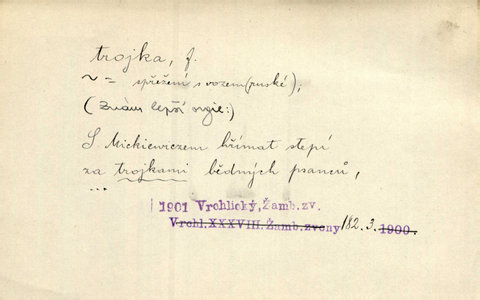 trojka, f.
~ = spřežení s vozem (ruské);
(Znám lepší orgie:)
S Mickiewiczem hřímat stepí
za trojkami bědných psanců,
...
1901 Vrchlický, Žamb. zv.
Vrchl. XXXVIII. Žamb. zvony 182. 3. 1900.